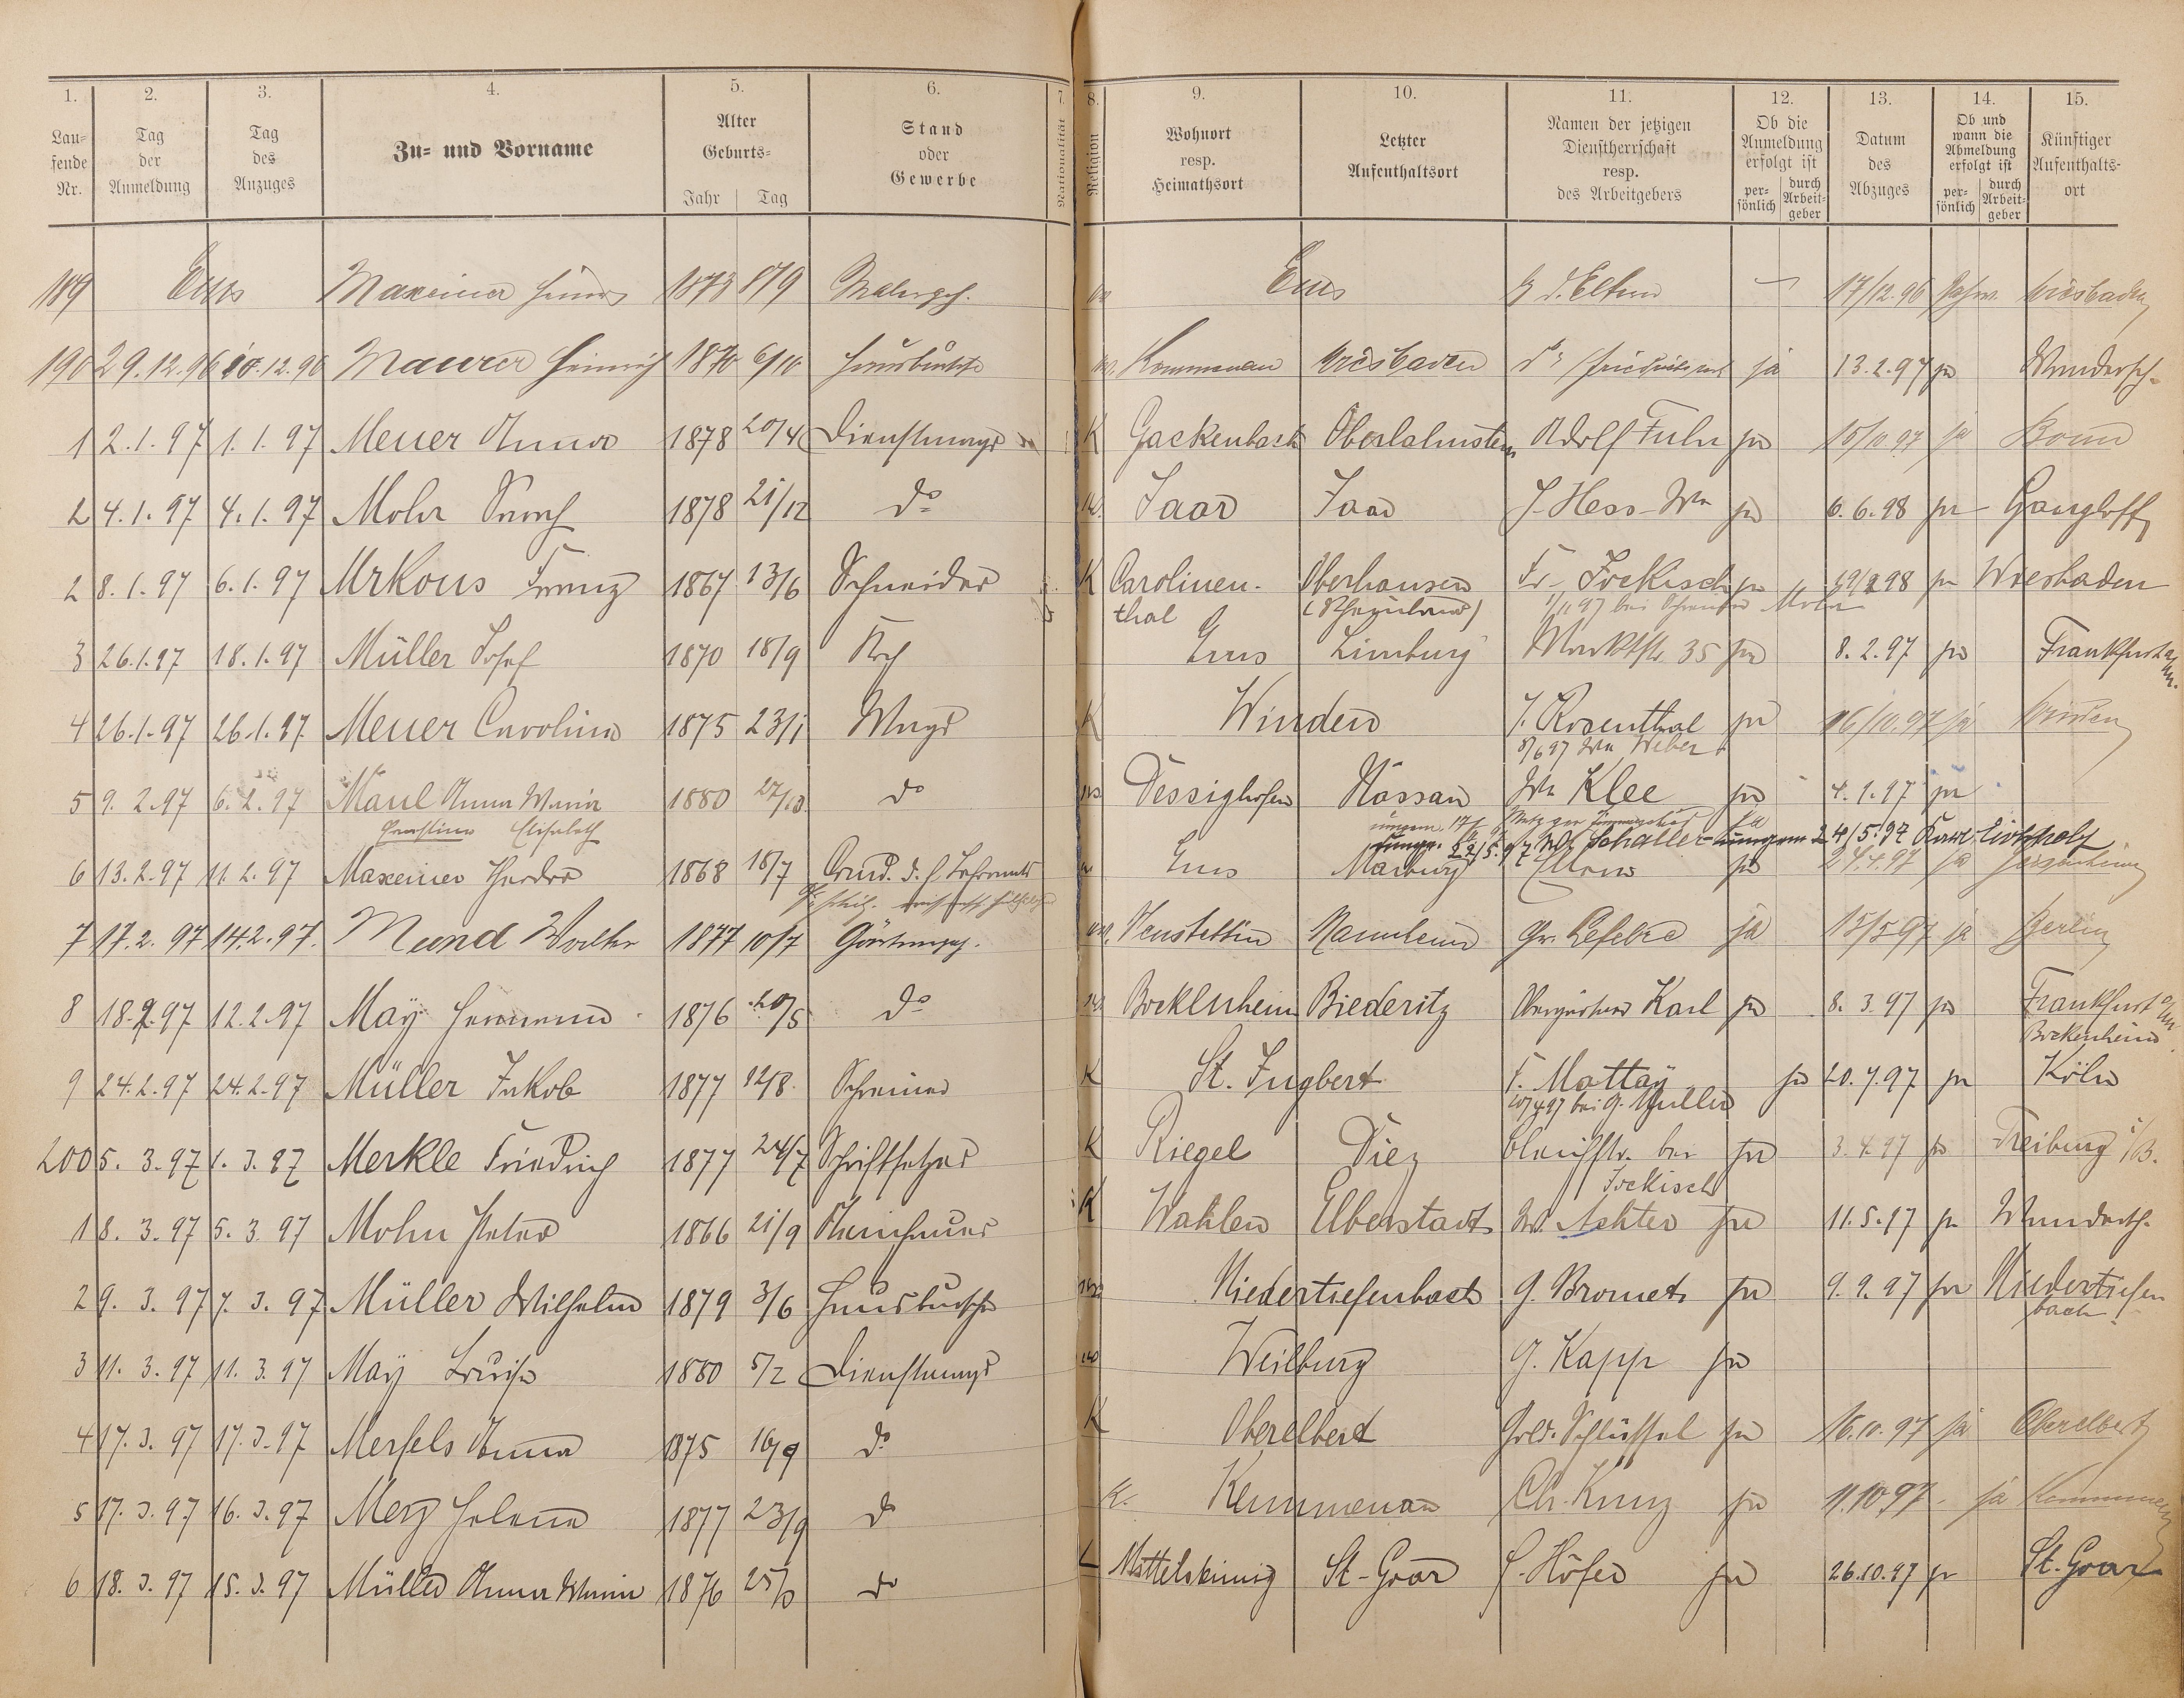 1. 2. 3. 4. 5. 6. 7. 8. 9. 10. 11. 12. 13. 14. 15.
Lau=
fende
Nr.
Tag
der
Anmeldung
Tag
des
Anzuges
Zu= und Vorname
Alter
Geburts=
Jahr Tag
Stand
oder
Gewerbe
Nationalität
Religion
Wohnort
resp.
Heimathsort
Letzter
Aufenthaltsort
Namen der jetzigen
Dienstherrschaft
resp.
des Arbeitgebers
Ob die
Anmeldung
erfolgt ist
per=
sönlich
durch
Arbeit=
geber
Datum
des
Abzuges
Ob und
wann die
Abmeldung
erfolgt ist
per=
sönlich
durch
Arbeit=
geber
Künftiger
Aufenthalts=
ort
189 Ems Maxeiner 1873 Malergeh. Ems d. Eltern 17/12.96 Wiesbaden
190 29.12.96 12.96 Maurer Heinrich 1870 6/10 Hausbursche Kemmenau Wiesbaden ja 13.2.97 ja Wandersch.
1 2.1.97 1.1.97 Meuer Anna 1878 20/4 Dienstmagd K Gackenbach Oberlahnstein Adolf Fuhr ja 15/10 97 ja Bonn
2 4.1.97 4.1.97 Mohr 1878 21/12 do Saar Saar J. Hess Wwe ja 6.6.98 ja Gangloff
2 8.1.97 6.1.97 Mrkous Franz 1867 13/6 Schneider K Carolinen- Oberhausen Fr. Jockisch ja 98 ja Wiesbaden
thal (Rheinland) 1/11 97 bei
3 26.1.97 18.1.97 Müller Josef 1870 18/9 Koch Ems Limburg Marktstr. 35 ja 8.2.97 ja Frankfurt a/M.
4 26.1.97 26.1.97 Meuer Carolina 1875 23/1 Magd K Winden J. Rosenthal ja 16/10.97 ja Winden
8/6 97 Wwe Weber
5 9.2.97 6.2.97 Maul Anna Maria 1880 27/10 do Dessighofen Nassau Wwe Klee ja 4.1.97 ja
Elisabeth
Schaller 24/5.97 Karl
6 13.2.97 11.2.97 Maxeiner Theodor 1868 18/7 Cand. d. h. Lehramts Ems Marburg Eltern ja 24.4.97 ja
7 17.2.97 14.2.97. Mund Walter 1877 10/7 Gärtnergeh. Neustettin Mannheim Gr. Lefebre ja 15/5 97 ja Berlin
8 18.2.97 12.2.97 May Hermann 1876 20/5 do Bockelnheim Biederitz Obergärtner Karl ja 8.3.97 ja Frankfurt a/M
Bockenheim
9 24.2.97 24.2.97 Müller Jakob 1877 12/8. Schreiner K St. Ingbert F. Mattay ja 20.7.97 ja Köln
bei G. Müller
200 5.3.97 1.3.97 Merkle Friedrich 1877 24/7 Schriftsetzer K Riegel Diez Bleichstr. bei ja 3.4.97 ja Freiburg i/B.
Jockisch
1 8.3.97 5.3.97 Mohn Peter 1866 21/9 Steinhauer K Wahlen Elberstadt W. Achter ja 11.5.97 ja Wandersch.
2 9.3.97 7.3.97 Müller Wilhelm 1879 3/6 Hausbursche Niedertiefenbach G. Bromet ja 9.9.97 ja Niedertiefen
bach
3 11.3.97 11.3.97 May Louise 1880 5/2 Dienstmagd Weilburg G. Kapp ja
4 17.3.97 17.3.97 Merfels Anna 1875 16/9 do K Oberelbert Gold. Schlüssel ja 16.10.97 ja Oberelbert
5 17.3.97 16.3.97 Merz Helena 1877 23/9 do K. Kemmenau Ch. Kunz ja 1.10 97 ja
6 18.3.97 15.3.97 Müller Anna Maria 1876 do St. Goar H. Höfer ja 26.10.97 ja St. Goar